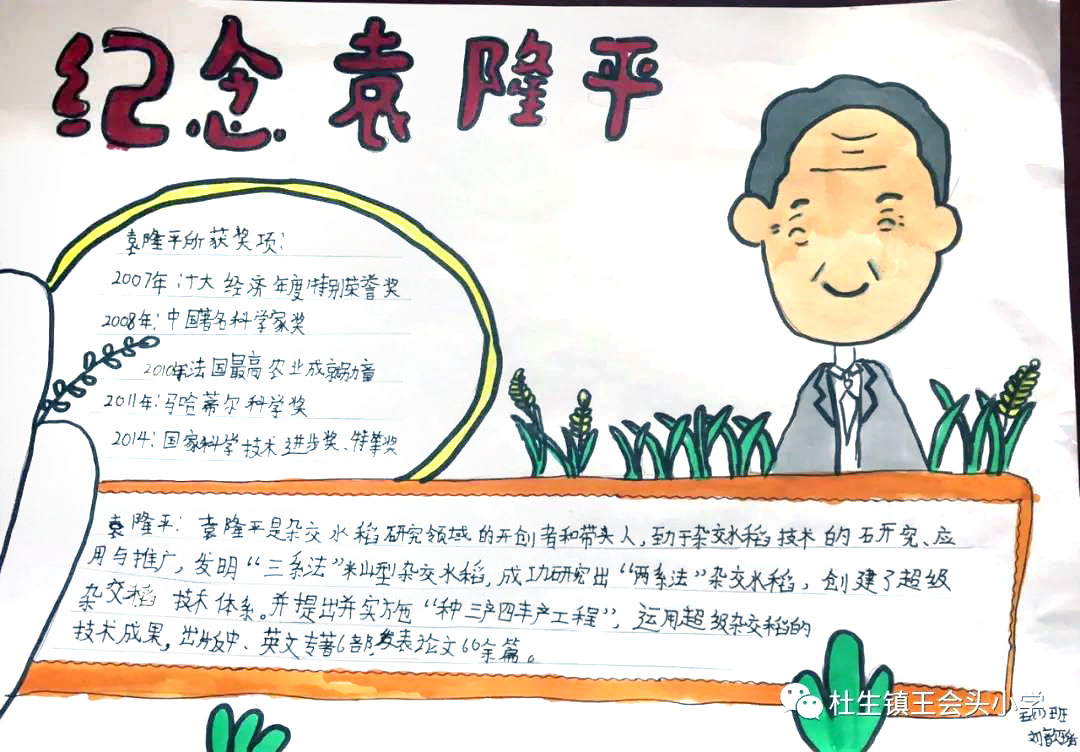 纪念袁隆平
袁隆平所获奖项:
2007年:汁大经济年度特别荣誉奖
2008年:中国著名科学家奖
2010年法国最高农业成就勋章
2011年:马哈蒂尔科学奖
2014:国家科学技术进步奖、特等奖
袁隆平:袁隆平是杂交水稻研究领域的开创者和带头人,致力于杂交水稻技术的研究、应
用与推广,发明“三系法”籼型杂交水稻,成功研究出“两系法”杂交水稻,创建了超级
杂交稻技术体系。并提出并实施“种三产四丰产工程”,运用超级杂交稻的
技术成果,出版中、英文专著6部发表论文60余篇。
杜生镇王会头小学
五四班